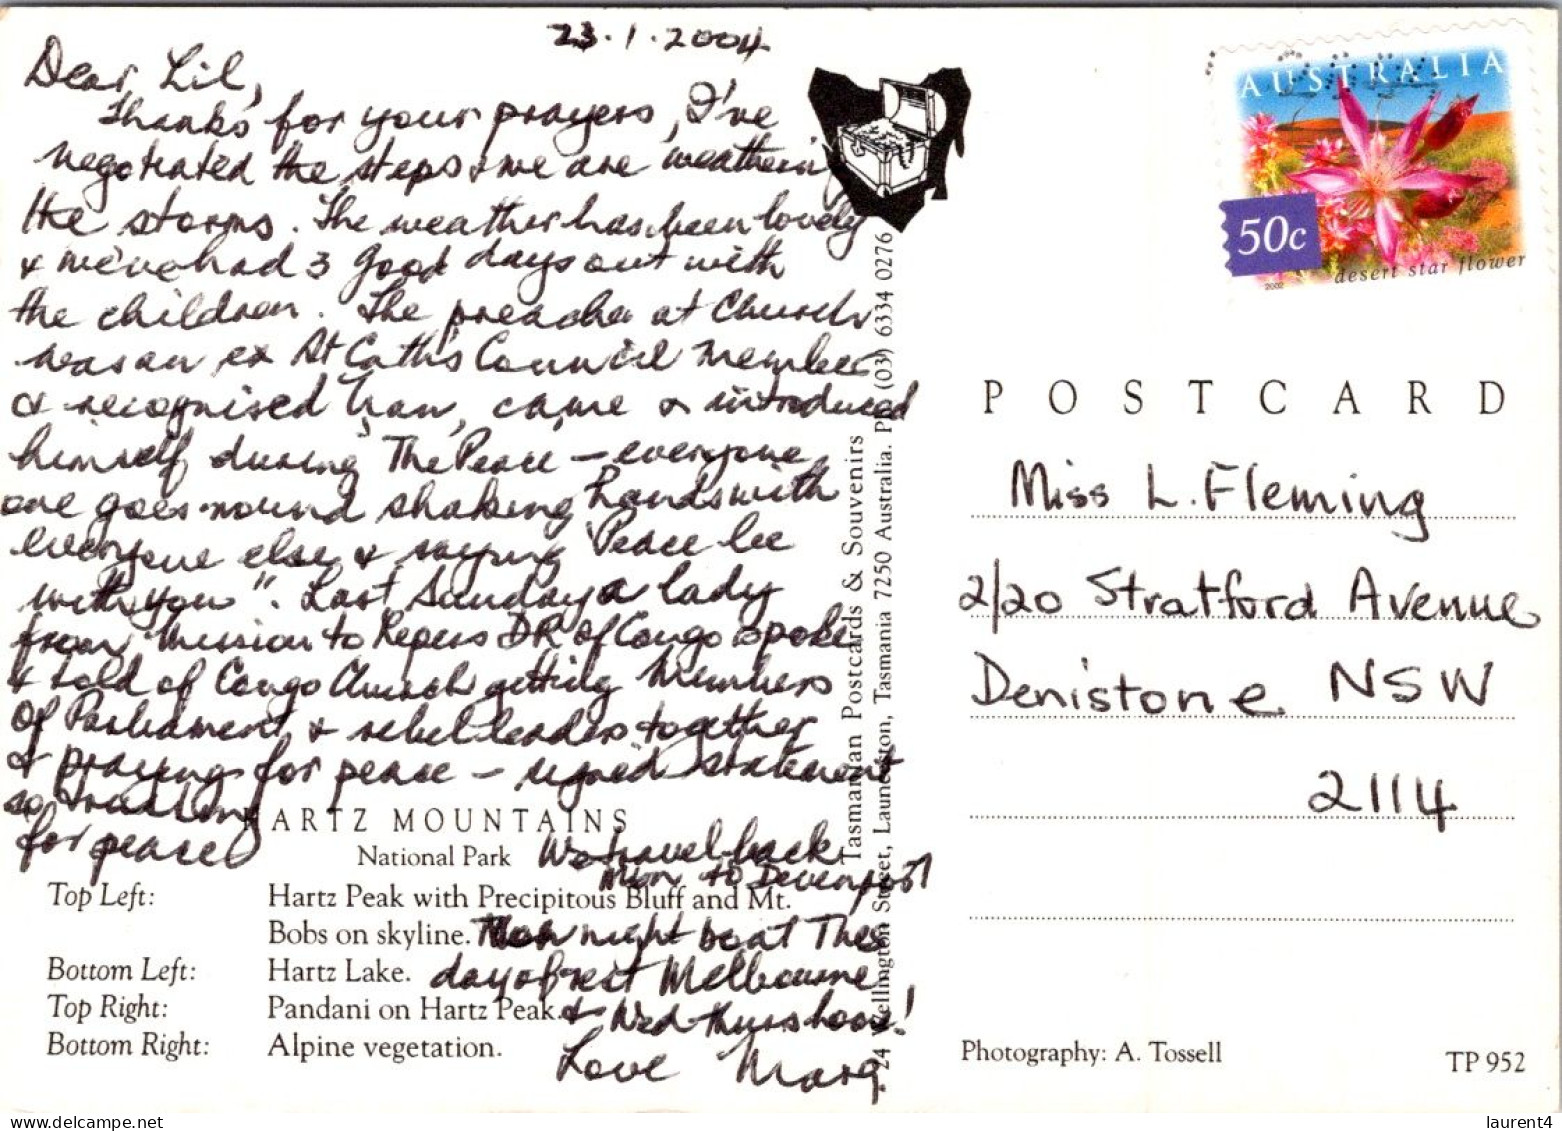 23.1.2004
Dear Lil,
Thanks for your prayers, I've
negotiated the steps & we are weathering
the storms. The weather has been lovely
& we've had 3 good days out with
the children. The preacher at Church
was an ex St Cath's Council member
& recognised Ian, came & introduced
himself during The Peace – everyone
one goes round shaking hands with
everyone else & saying "Peace be
with you". Last Sunday a lady
from Mission to Lepers DR of Congo spoke
& told of Congo Church getting Members
of Parliament & rebel leaders together
& praying for peace – signed statement
so
for peace
HARTZ MOUNTAINS
National Park
We travel back
Mon to Devenport
Top Left: Hartz Peak with Precipitous Bluff and Mt.
Bobs on skyline.
Mon night boat Tues
Bottom Left: Hartz Lake.
day of rest Melbourne
Top Right: Pandani on Hartz Peak.
& Wed-Thurs home!
Bottom Right: Alpine vegetation.
Love Marg.
Tasmanian Postcards & Souvenirs
24 Wellington Street, Launceston, Tasmania 7250 Australia. Ph (03) 6334 0276
AUSTRALIA
50c
2002
desert star flower
POSTCARD
Miss L. Fleming
2/20 Stratford Avenue
Denistone NSW
2114
Photography: A. Tossell
TP 952
delcampe.net
laurent4